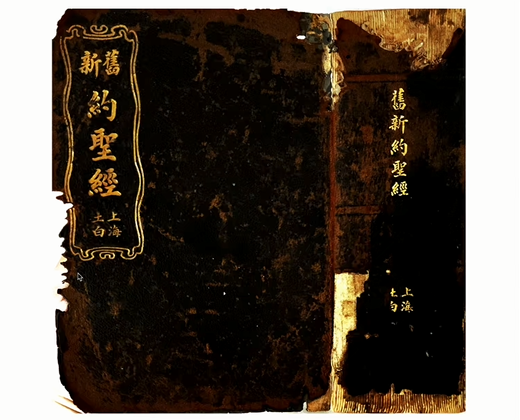 舊新約聖經
上海土白
舊新約聖經
上海土白